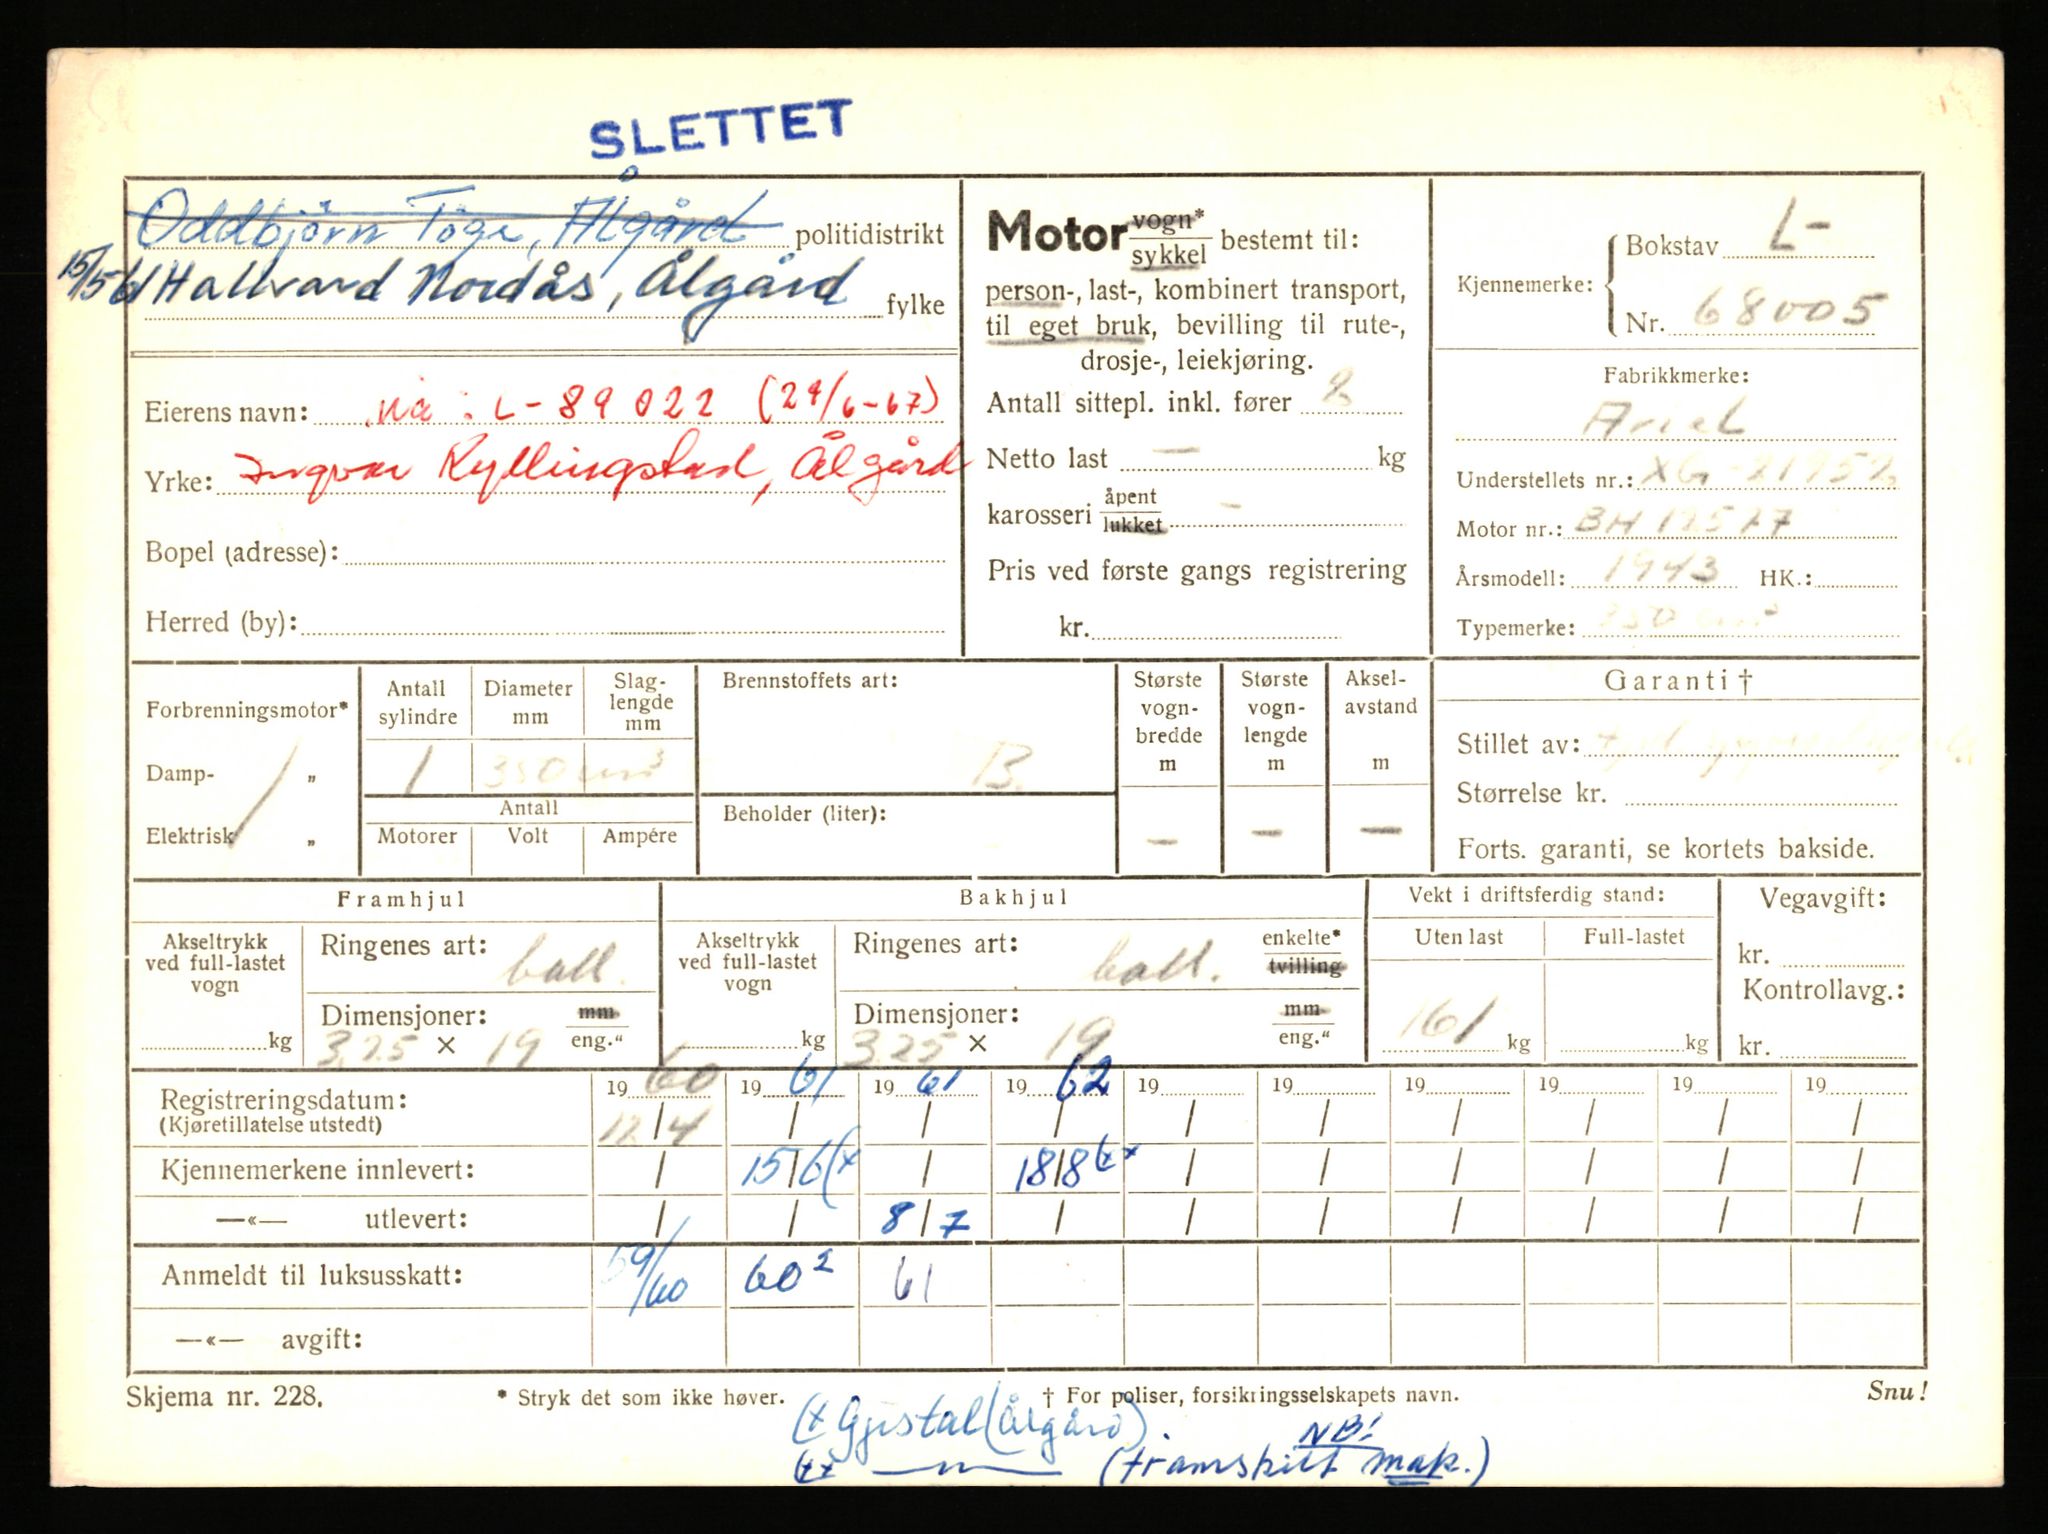 SLETTET
Oddbjörn Töge, Ålgård politidistrikt
15/5 61 Hallvard Nordås, Ålgård fylke
Eierens navn: Nå: L-89022 (29/6-67)
Yrke: Ingvar Kyllingstad, Ålgård
Bopel (adresse):
Herred (by):
Motor vogn* / sykkel bestemt til:
person-, last-, kombinert transport,
til eget bruk, bevilling til rute-,
drosje-, leiekjøring.
Antall sittepl. inkl. fører 2
Netto last — kg
karosseri åpent / lukket —
Pris ved første gangs registrering
kr.
Kjennemerke: Bokstav L-
Nr. 68005
Fabrikkmerke:
Ariel
Understellets nr.: XG-21952
Motor nr.: BH 12527
Årsmodell: 1943 HK.:
Typemerke: 350 cm³
Forbrenningsmotor*
Damp- „
Elektrisk „
Antall sylindre
1
Diameter mm
Slaglengde mm
350 cm³
Antall
Motorer Volt Ampére
Brennstoffets art:
B.
Beholder (liter):
Største vognbredde m
—
Største vognlengde m
—
Akselavstand m
—
Garanti †
Stillet av:
Størrelse kr.
Forts. garanti, se kortets bakside.
Framhjul
Akseltrykk ved full-lastet vogn
kg
Ringenes art: ball.
Dimensjoner: mm / eng."
3.25 × 19
Bakhjul
Akseltrykk ved full-lastet vogn
kg
Ringenes art: ball. enkelte* / tvilling
Dimensjoner: mm / eng."
3.25 × 19
Vekt i driftsferdig stand:
Uten last Full-lastet
161 kg kg
Vegavgift:
kr.
Kontrollavg.:
kr.
19 60 19 61 19 61 19 62 19 19 19 19 19 19
Registreringsdatum: 12/4 / / / / / / / / /
(Kjøretillatelse utstedt)
Kjennemerkene innlevert: / 15/6 (x / 18/8 (xx / / / / / /
—«— utlevert: / / 8/7 / / / / / / /
Anmeldt til luksusskatt: 59/60 60² 61
—«— avgift:
Skjema nr. 228. * Stryk det som ikke høver. † For poliser, forsikringsselskapets navn. Snu!
(x Gjestal (Ålgård).
NB!
(xx —"— (framskilt mak.)